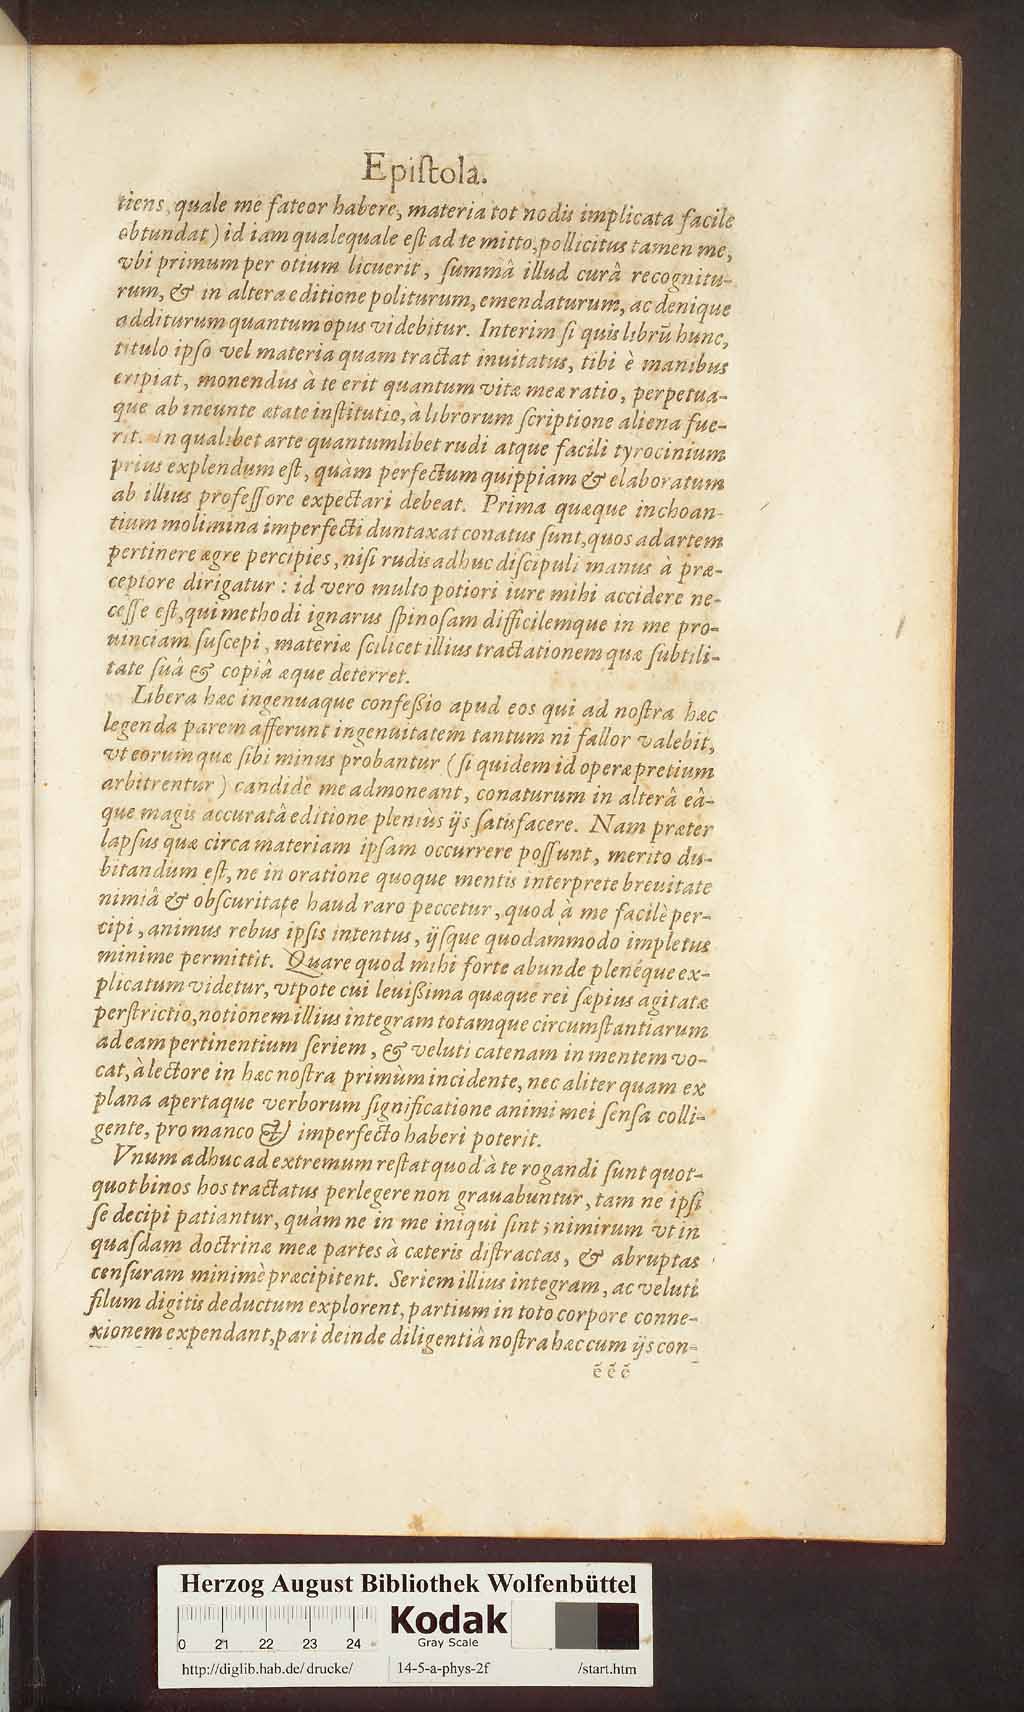 Epiſtola.
tiens, quale me fateor habere, materia tot nodis implicata facile
obtundat) id iam qualequale eſt ad te mitto, pollicitus tamen me,
vbi primum per otium licuerit, ſummâ illud curâ recognitu-
rum, & in altera editione politurum, emendaturum, ac denique
additurum quantum opus videbitur. Interim ſi quis librū hunc,
titulo ipſo vel materia quam tractat inuitatus, tibi è manibus
eripiat, monendus à te erit quantum vitæ meæ ratio, perpetua-
que ab ineunte ætate inſtitutio, à librorum ſcriptione aliena fue-
rit. In qualibet arte quantumlibet rudi atque facili tyrocinium
prius explendum eſt, quàm perfectum quippiam & elaboratum
ab illius profeſſore expectari debeat. Prima quæque inchoan-
tium molimina imperfecti duntaxat conatus ſunt, quos ad artem
pertinere ægre percipies, niſi rudis adhuc diſcipuli manus à præ-
ceptore dirigatur : id vero multo potiori iure mihi accidere ne-
ceſſe eſt, qui methodi ignarus ſpinoſam difficilemque in me pro-
uinciam ſuſcepi, materiæ ſcilicet illius tractationem quæ ſubtili-
tate ſuâ & copiâ æque deterret.
Libera hæc ingenuaque confeßio apud eos qui ad noſtra hæc
legenda parem afferunt ingenuitatem tantum ni fallor valebit,
vt eorum quæ ſibi minus probantur (ſi quidem id operæpretium
arbitrentur) candide me admoneant, conaturum in alterâ eâ-
que magis accuratâ editione pleniùs ijs ſatisfacere. Nam præter
lapſus quæ circa materiam ipſam occurrere poſſunt, merito du-
bitandum eſt, ne in oratione quoque mentis interprete breuitate
nimiâ & obſcuritate haud raro peccetur, quod à me facilè per-
cipi, animus rebus ipſis intentus, ijſque quodammodo impletus
minime permittit. Quare quod mihi forte abunde plenéque ex-
plicatum videtur, vtpote cui leuißima quæque rei ſæpius agitatæ
perſtrictio, notionem illius integram totamque circumſtantiarum
ad eam pertinentium ſeriem, & veluti catenam in mentem vo-
cat, à lectore in hæc noſtra primùm incidente, nec aliter quam ex
plana apertaque verborum ſignificatione animi mei ſenſa colli-
gente, pro manco & imperfecto haberi poterit.
Vnum adhuc ad extremum reſtat quod à te rogandi ſunt quot-
quot binos hos tractatus perlegere non grauabuntur, tam ne ipſi
ſe decipi patiantur, quàm ne in me iniqui ſint ; nimirum vt in
quaſdam doctrinæ meæ partes à cæteris diſtractas, & abruptas
cenſuram minimè præcipitent. Seriem illius integram, ac veluti
filum digitis deductum explorent, partium in toto corpore conne-
xionem expendant, pari deinde diligentiâ noſtra hæc cum ijs con-
é é é
Herzog August Bibliothek Wolfenbüttel
Kodak
Gray Scale
0 21 22 23 24
http://diglib.hab.de/drucke/ 14-5-a-phys-2f /start.htm